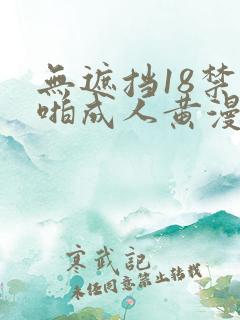 無遮挡18禁
啪成人黄漫
寒武記
未任同意禁止转载